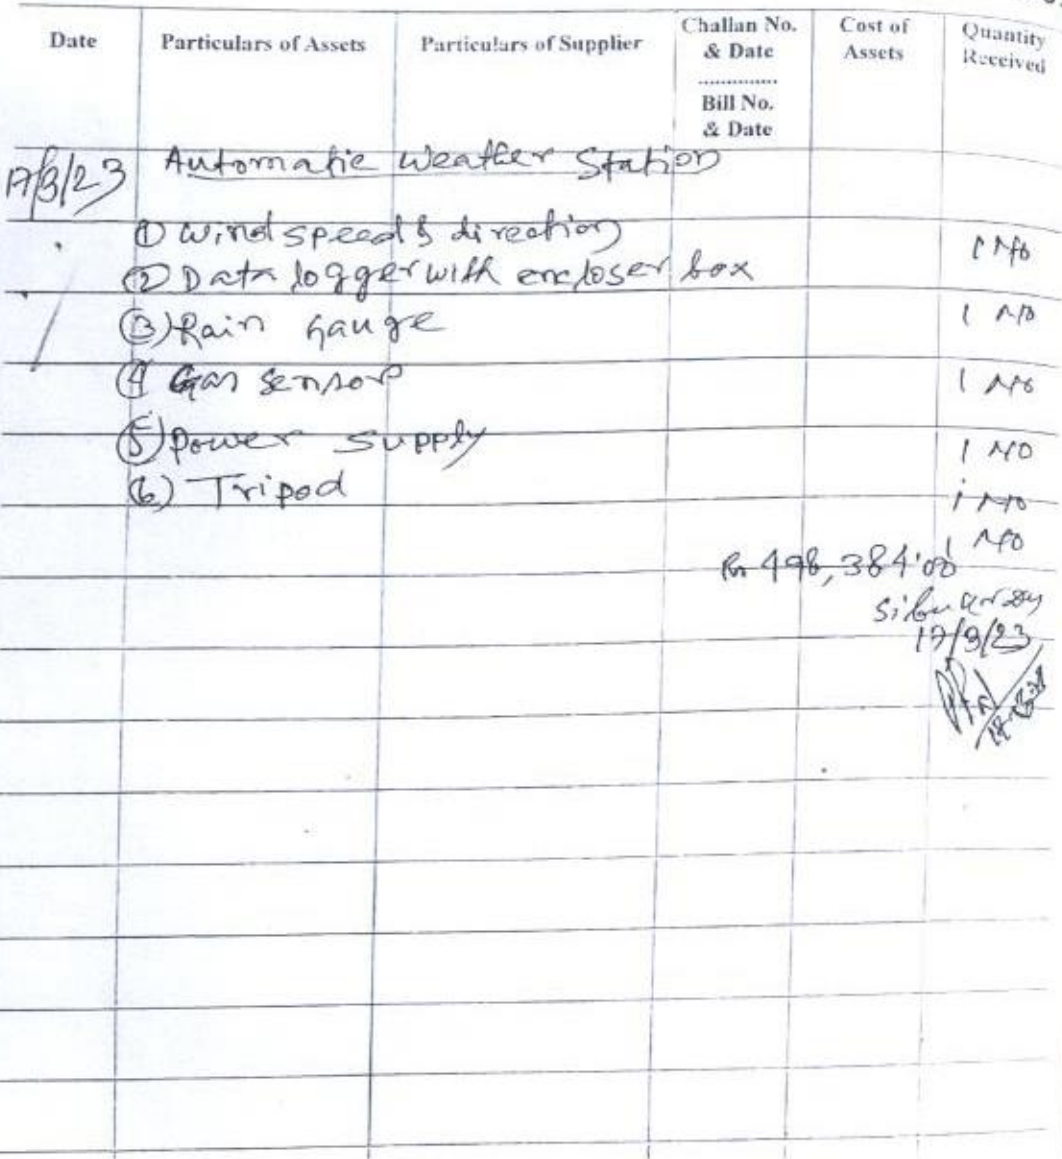 Date Particulars of Assets Particulars of Supplier Challan No. & Date .............. Bill No. & Date Cost of Assets Quantity Received
17/3/23 Automatic Weather Station
① Wind speed & direction 1 No
② Data logger with encloser box 1 No
③ Rain gauge 1 No
④ Gas sensor 1 No
⑤ Power supply 1 No
⑥ Tripod 1 No
Rs 498,384.00
17/3/23